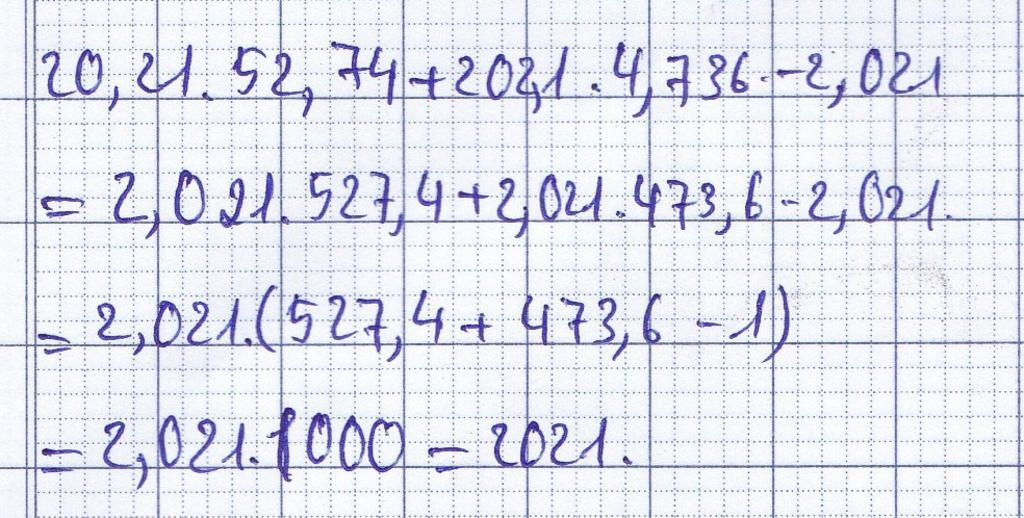 20,21.52,74+202,1.4,736-2,021
= 2,021.527,4+2,021.473,6-2,021.
= 2,021.(527,4+473,6-1)
= 2,021.1000=2021.